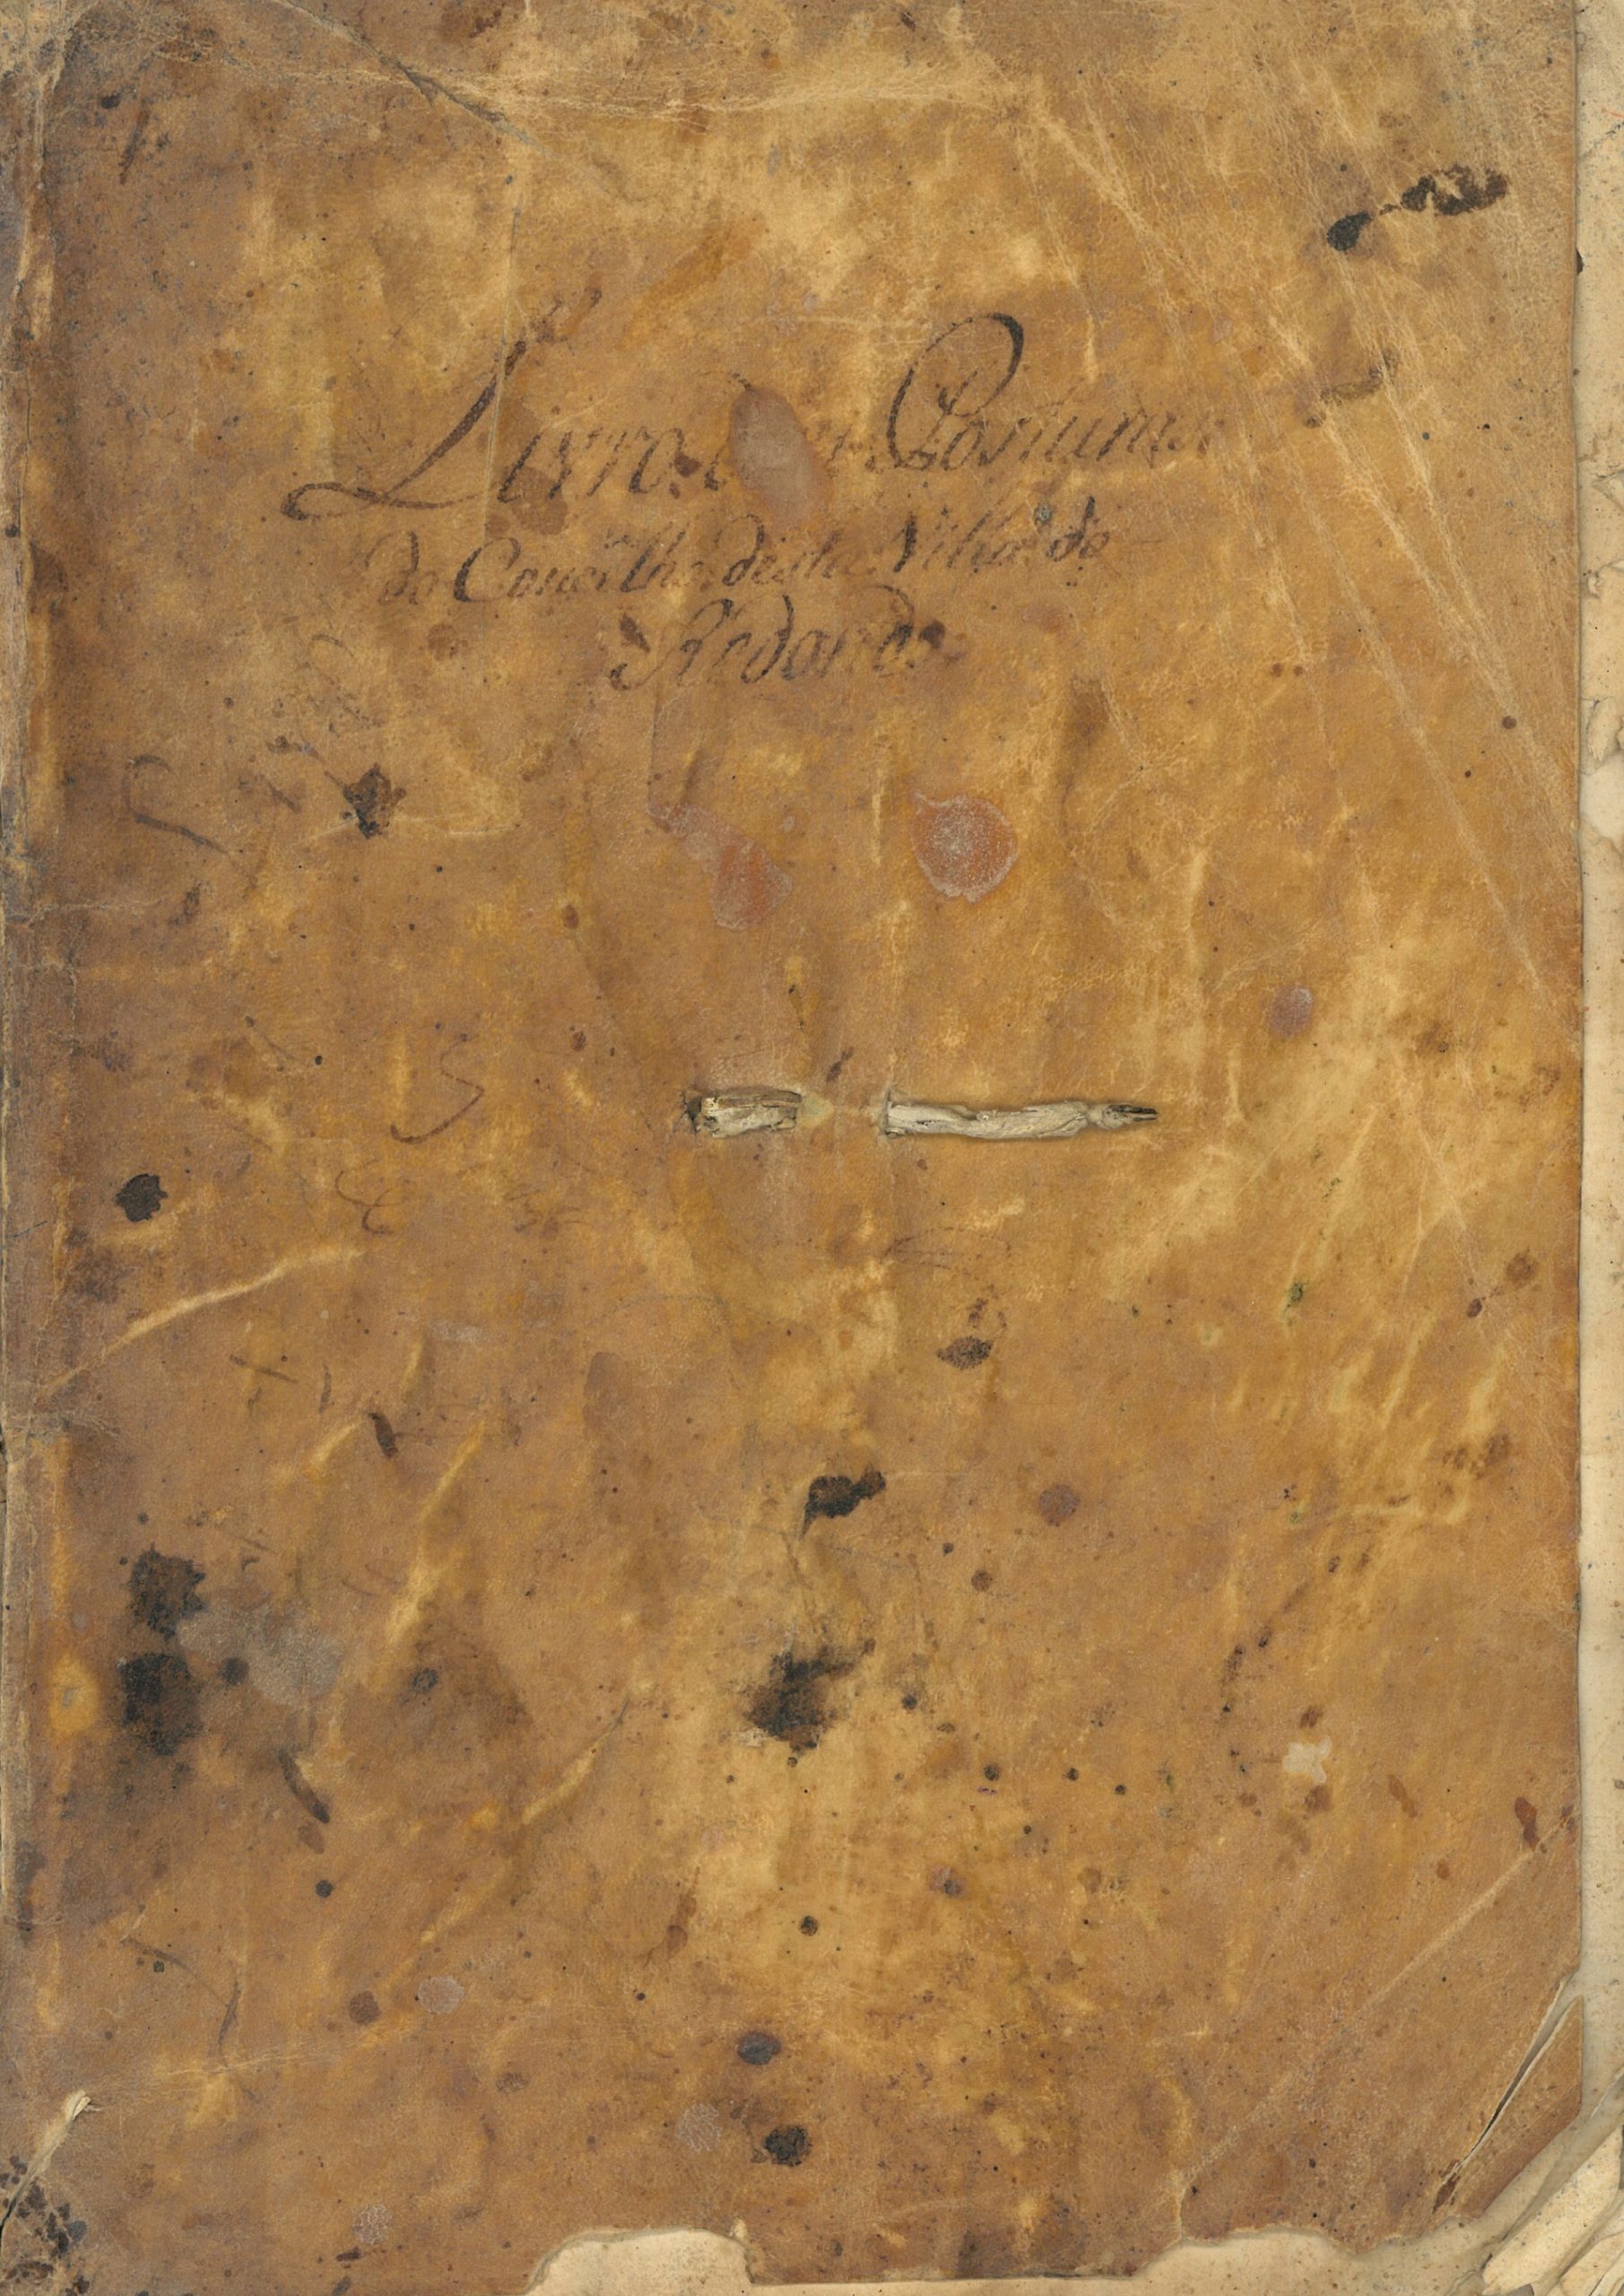 Livro das Posturas
do Concelho desta Villa do
Redondo